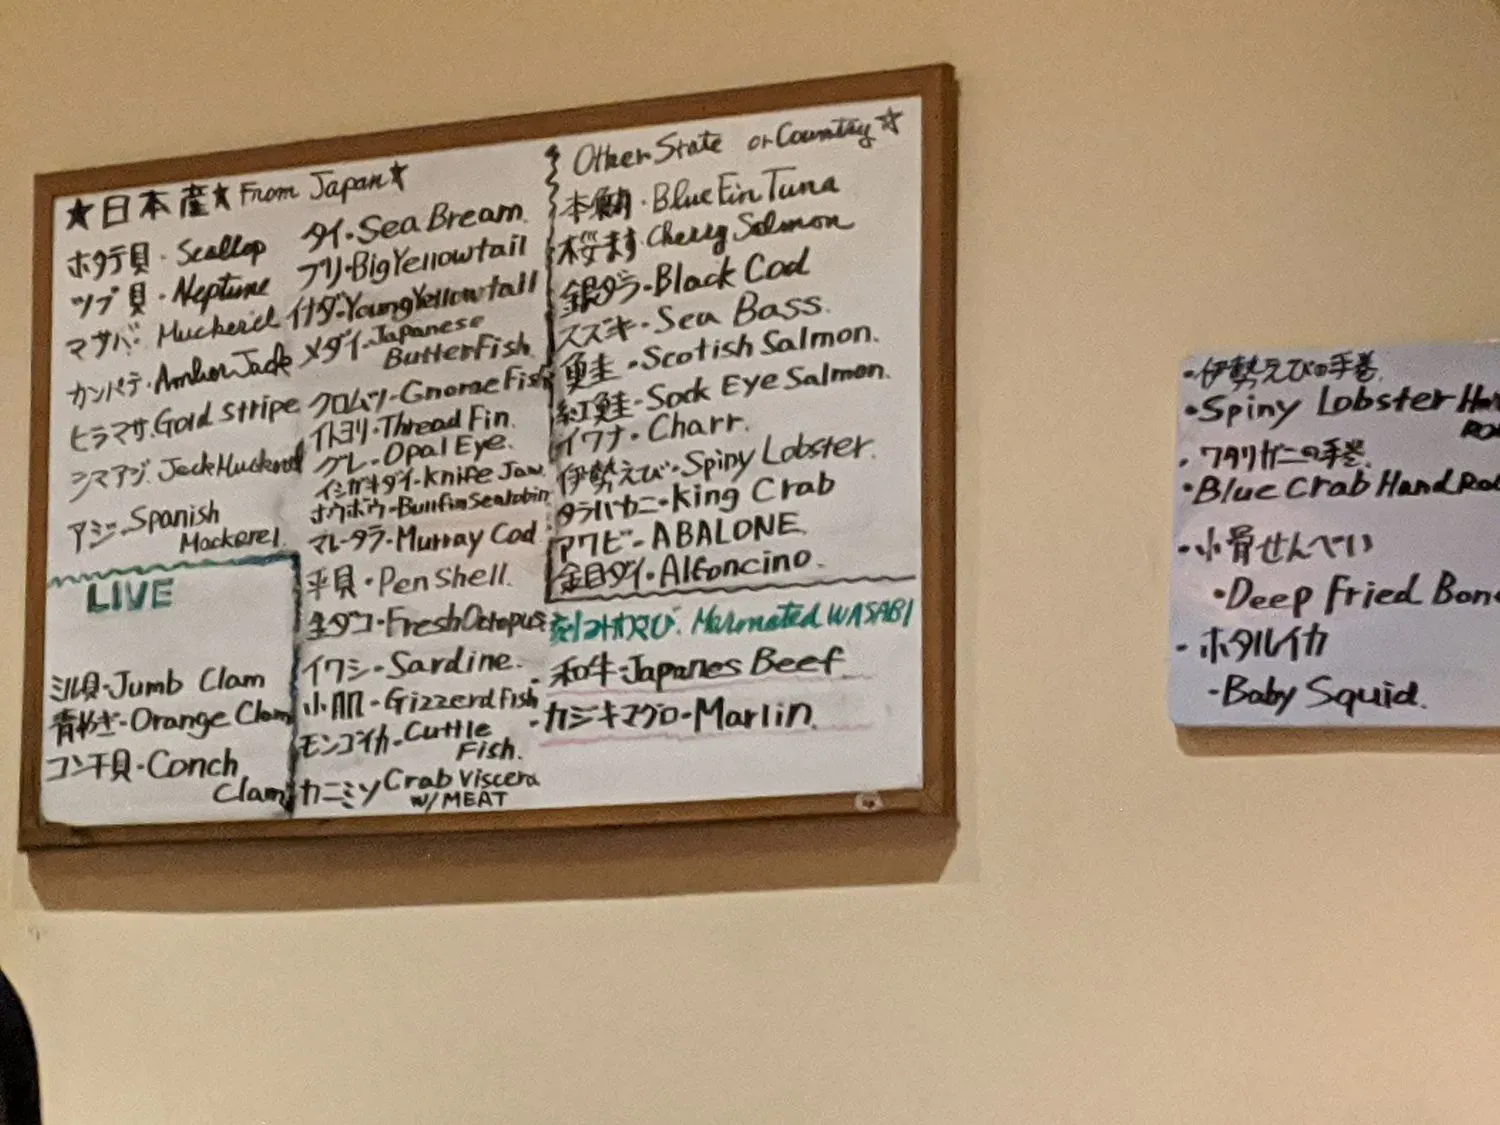 ★日本産★ From Japan★
ホタテ貝・Scallop
ツブ貝・Neptune
マサバ・Muckerel
カンパチ・AmberJack
ヒラマサ・Gold stripe
シマアジ・JackMuckerel
アジ・Spanish
Mackerel
タイ・Sea Bream
ブリ・Big Yellowtail
イナダ・Young Yellowtail
メダイ・Japanese
ButterFish
クロムツ・Gnome Fish
イトヨリ・Thread Fin.
グレ・Opal Eye.
イシガキダイ・Knife Jaw
ホウボウ・Bullfin Searobin
マレータラ・Murray Cod
平貝・Pen Shell.
生ダコ・Fresh Octopus
イワシ・Sardine.
小肌・Gizzerd Fish
モンゴイカ・Cuttle
Fish.
カニミソ Crab Viscera
W/ MEAT
LIVE
ミル貝・Jumb Clam
青やぎ・Orange Clam
コンチ貝・Conch
Clam
Other State or Country☆
本鮪・Blue Fin Tuna
桜ます・Cherry Salmon
銀ダラ・Black Cod
スズキ・Sea Bass.
鮭・Scotish Salmon.
紅鮭・Sock Eye Salmon.
イワナ・Charr.
伊勢えび・Spiny Lobster.
タラバカニ・King Crab
アワビ・ABALONE.
金目ダイ・Alfoncino.
刻みわさび. Marinated WASABI
・和牛・Japanes Beef
・カジキマグロ・Marlin.
・伊勢えびの手巻
・Spiny Lobster Han
Ro
・ワタリガニの手巻
・Blue Crab Hand Rol
・小骨せんべい
・Deep Fried Bone
・ホタルイカ
・Baby Squid.